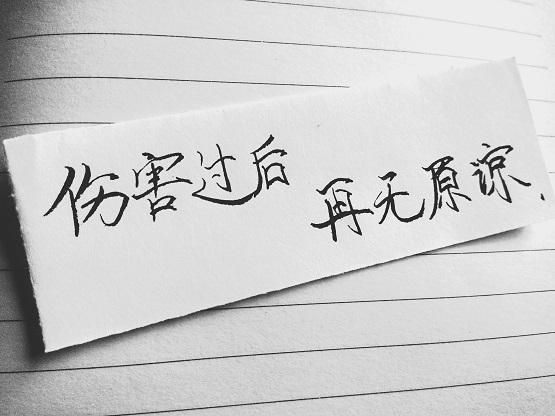 伤害过后
再无原谅.